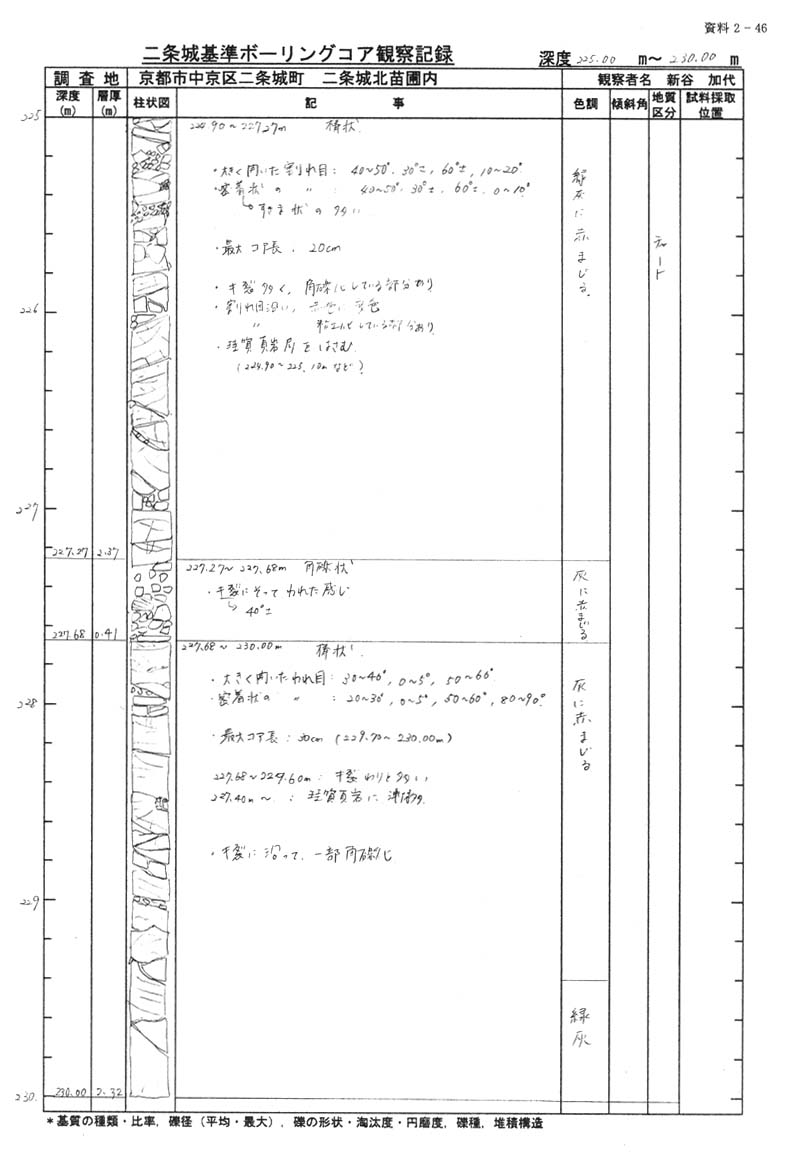 資料2-46
二条城基準ボーリングコア観察記録 深度 225.00 m～ 230.00 m
調査地 京都市中京区二条城町 二条城北苗圃内 観察者名 新谷 加代
深度(m) 層厚(m) 柱状図 記事 色調 傾斜角 地質区分 試料採取位置
225
224.90～227.27m 棒状
・大きく開いた割れ目: 40～50°, 30°±, 60°±, 10～20°
・密着状の 〃 : 40～50°, 30°±, 60°±, 0～10°
状の多い
緑灰に赤まじる
チャート
・最大コア長, 20cm
・キ裂多く, 角礫化している部分あり
226
・割れ目沿い, 赤色に
〃 粘土化している部分あり
・珪質頁岩層をはさむ
(224.90～225.10mなど)
227
227.27 2.37
227.27～227.68m 角礫状
・キ裂にそってわれた感じ
40°±
灰に赤まじる
227.68 0.41
227.68～230.00m 棒状
・大きく開いたわれ目: 30～40°, 0～5°, 50～60°
・密着状の 〃 : 20～30°, 0～5°, 50～60°, 80～90°
灰に赤まじる
228
・最大コア長: 30cm (229.70～230.00m)
227.68～229.60m: キ裂わりと多い
～ : 珪質頁岩に
・キ裂に沿って, 一部角礫化
229
緑灰
230. 230.00 2.32
*基質の種類・比率, 礫径(平均・最大), 礫の形状・淘汰度・円磨度, 礫種, 堆積構造